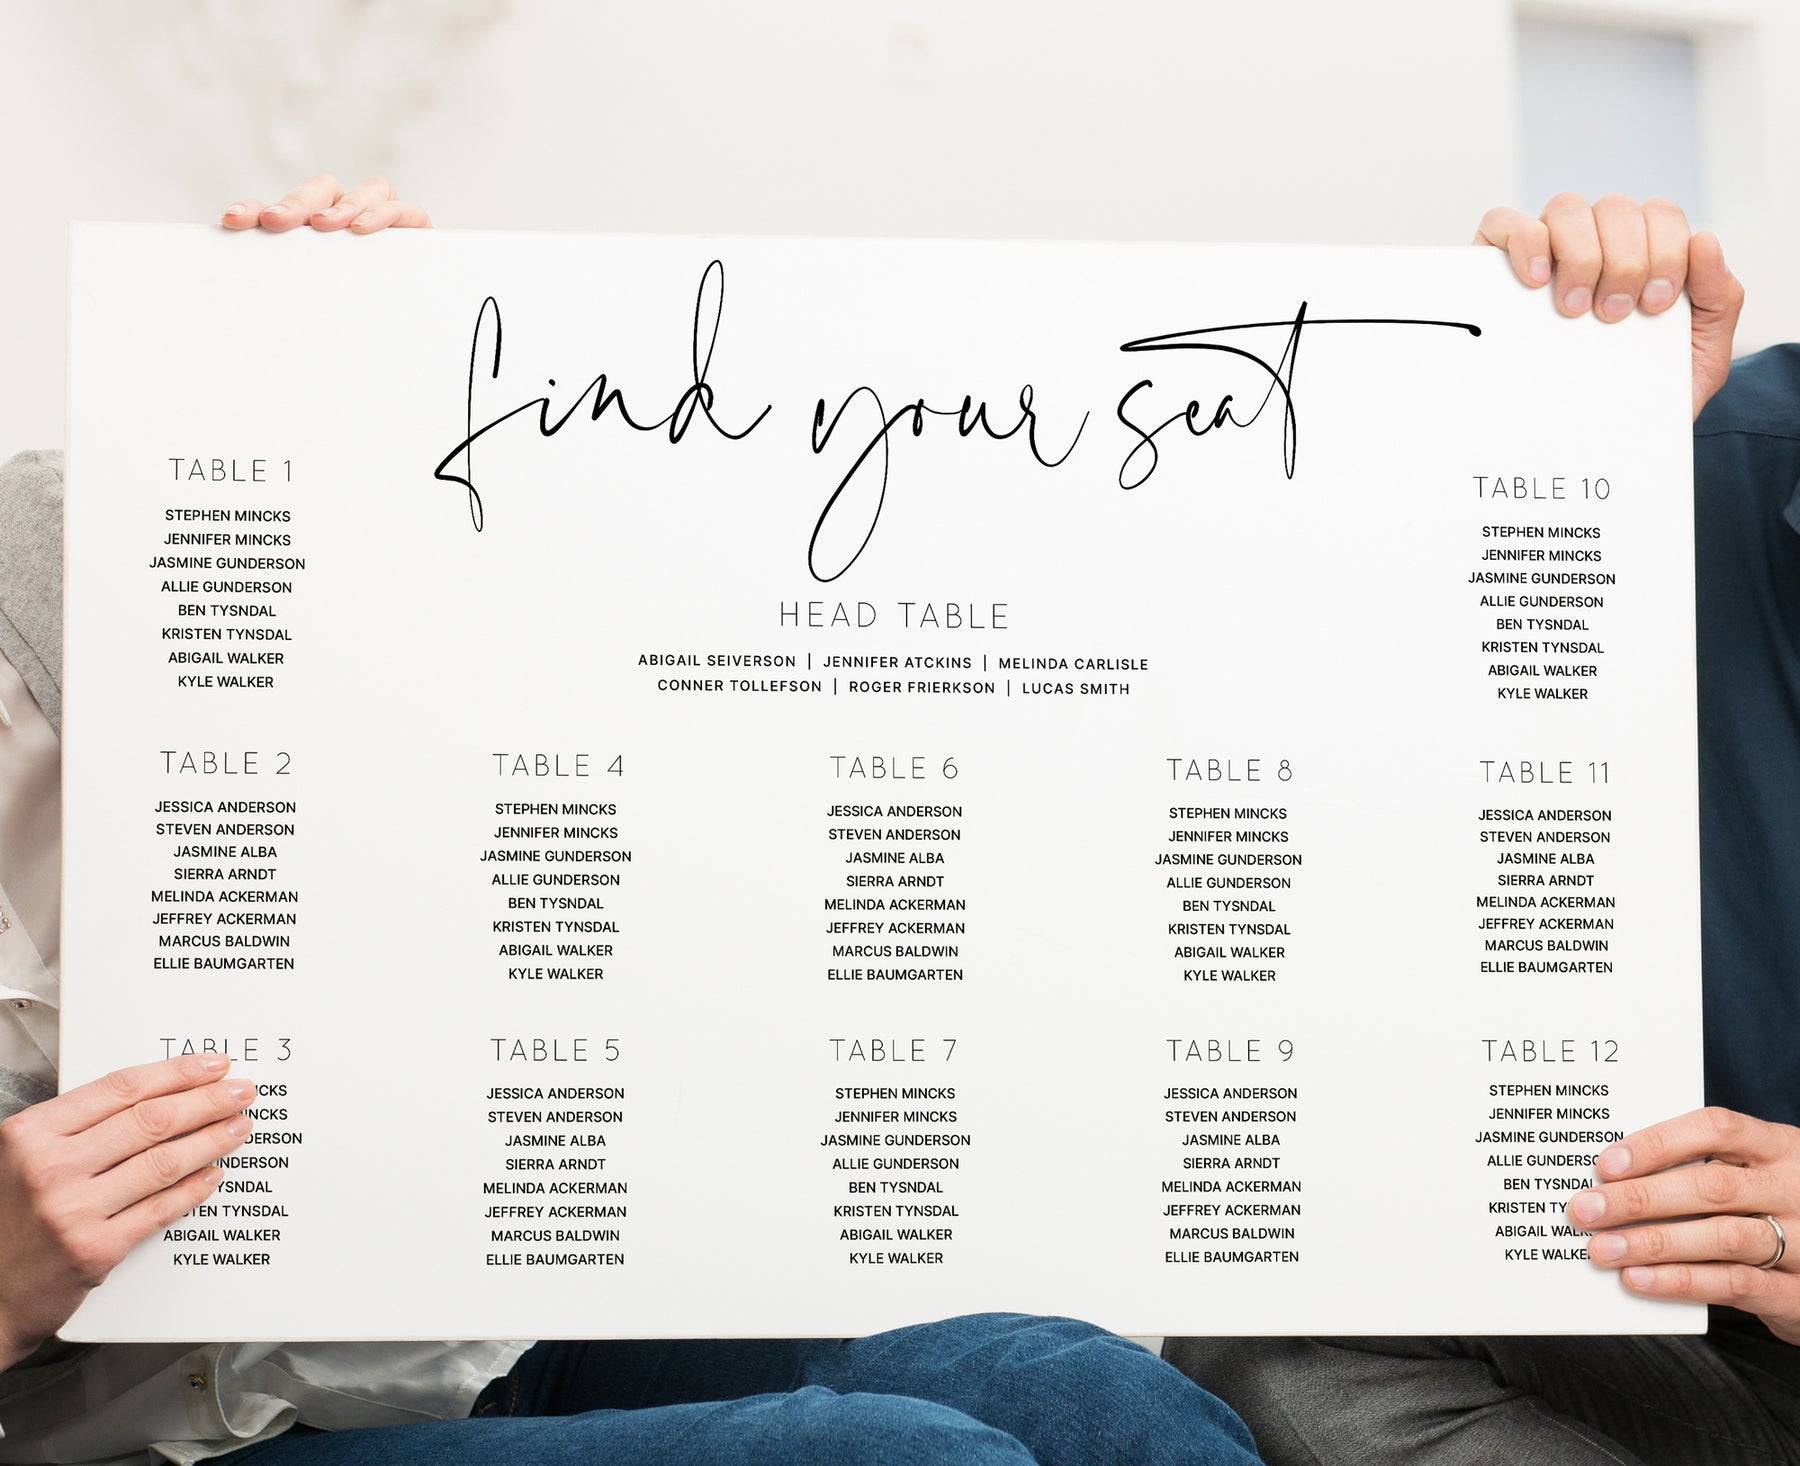 find your seat
TABLE 1
STEPHEN MINCKS
JENNIFER MINCKS
JASMINE GUNDERSON
ALLIE GUNDERSON
BEN TYSNDAL
KRISTEN TYNSDAL
ABIGAIL WALKER
KYLE WALKER
HEAD TABLE
ABIGAIL SEIVERSON | JENNIFER ATCKINS | MELINDA CARLISLE
CONNER TOLLEFSON | ROGER FRIERKSON | LUCAS SMITH
TABLE 10
STEPHEN MINCKS
JENNIFER MINCKS
JASMINE GUNDERSON
ALLIE GUNDERSON
BEN TYSNDAL
KRISTEN TYNSDAL
ABIGAIL WALKER
KYLE WALKER
TABLE 2
JESSICA ANDERSON
STEVEN ANDERSON
JASMINE ALBA
SIERRA ARNDT
MELINDA ACKERMAN
JEFFREY ACKERMAN
MARCUS BALDWIN
ELLIE BAUMGARTEN
TABLE 4
STEPHEN MINCKS
JENNIFER MINCKS
JASMINE GUNDERSON
ALLIE GUNDERSON
BEN TYSNDAL
KRISTEN TYNSDAL
ABIGAIL WALKER
KYLE WALKER
TABLE 6
JESSICA ANDERSON
STEVEN ANDERSON
JASMINE ALBA
SIERRA ARNDT
MELINDA ACKERMAN
JEFFREY ACKERMAN
MARCUS BALDWIN
ELLIE BAUMGARTEN
TABLE 8
STEPHEN MINCKS
JENNIFER MINCKS
JASMINE GUNDERSON
ALLIE GUNDERSON
BEN TYSNDAL
KRISTEN TYNSDAL
ABIGAIL WALKER
KYLE WALKER
TABLE 11
JESSICA ANDERSON
STEVEN ANDERSON
JASMINE ALBA
SIERRA ARNDT
MELINDA ACKERMAN
JEFFREY ACKERMAN
MARCUS BALDWIN
ELLIE BAUMGARTEN
TABLE 3
ABIGAIL WALKER
KYLE WALKER
TABLE 5
JESSICA ANDERSON
STEVEN ANDERSON
JASMINE ALBA
SIERRA ARNDT
MELINDA ACKERMAN
JEFFREY ACKERMAN
MARCUS BALDWIN
ELLIE BAUMGARTEN
TABLE 7
STEPHEN MINCKS
JENNIFER MINCKS
JASMINE GUNDERSON
ALLIE GUNDERSON
BEN TYSNDAL
KRISTEN TYNSDAL
ABIGAIL WALKER
KYLE WALKER
TABLE 9
JESSICA ANDERSON
STEVEN ANDERSON
JASMINE ALBA
SIERRA ARNDT
MELINDA ACKERMAN
JEFFREY ACKERMAN
MARCUS BALDWIN
ELLIE BAUMGARTEN
TABLE 12
STEPHEN MINCKS
JENNIFER MINCKS
JASMINE GUNDERSON
ALLIE
BEN TYSNDAL
KRISTEN
ABIGAIL
KYLE WALKER